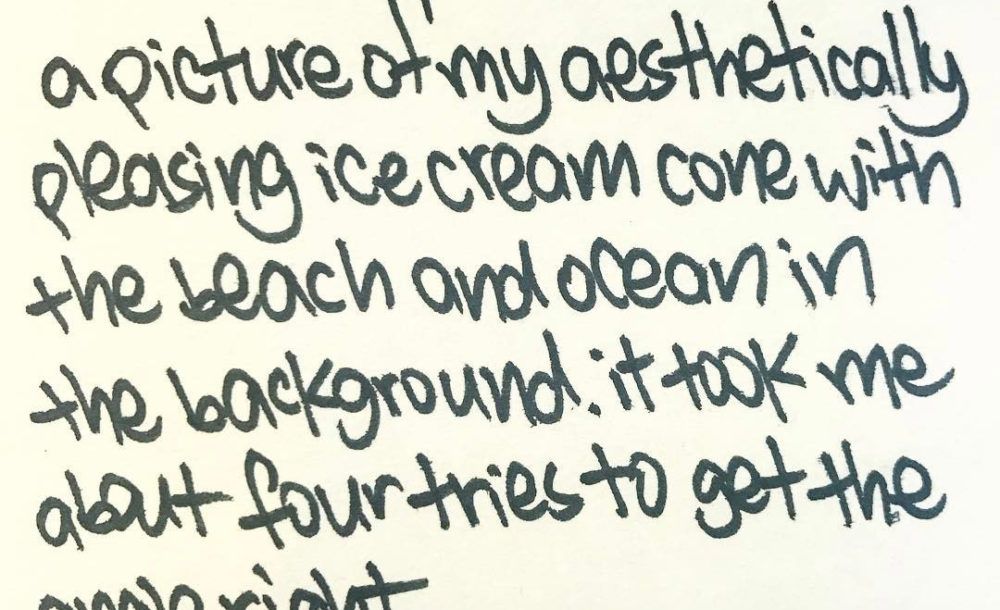 a picture of my aesthetically
pleasing ice cream cone with
the beach and ocean in
the background. it took me
about four tries to get the
right